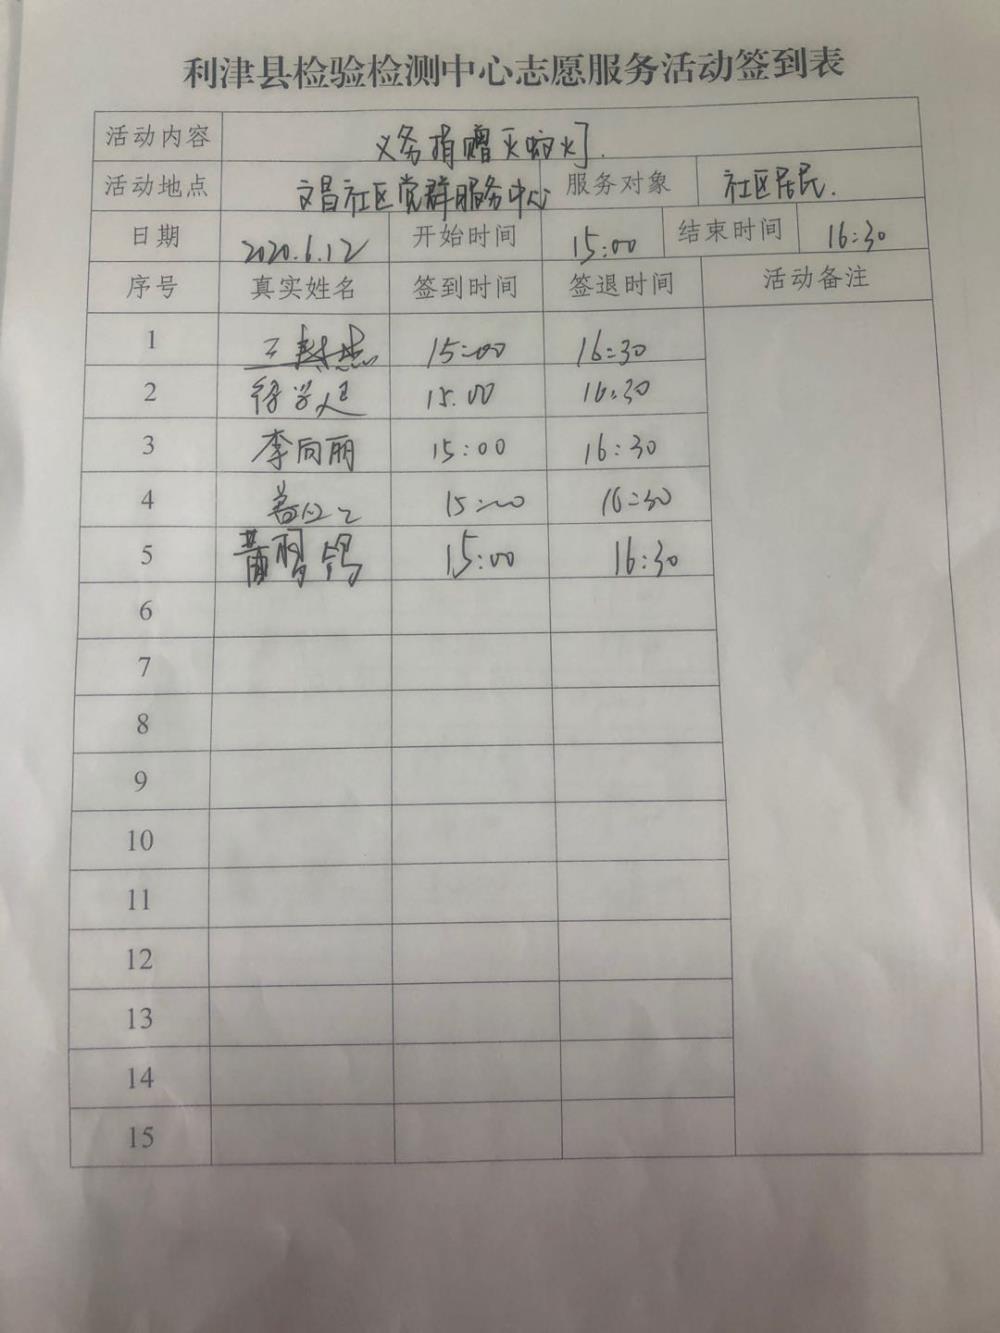 利津县检验检测中心志愿服务活动签到表
活动内容 义务捐赠灭蚊灯.
活动地点 文昌社区党群服务中心 服务对象 社区居民.
日期 2020.6.12 开始时间 15:00 结束时间 16:30
序号 真实姓名 签到时间 签退时间 活动备注
1 15:00 16:30
2 15:00 16:30
3 李向丽 15:00 16:30
4 15:00 16:30
5 15:00 16:30
6
7
8
9
10
11
12
13
14
15